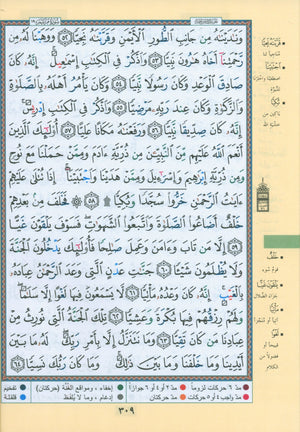 وَنَٰدَيْنَٰهُ مِن جَانِبِ ٱلطُّورِ ٱلْأَيْمَنِ وَقَرَّبْنَٰهُ نَجِيًّا ٥٢ وَوَهَبْنَا لَهُۥ مِن
رَّحْمَتِنَآ أَخَاهُ هَٰرُونَ نَبِيًّا ٥٣ وَٱذْكُرْ فِى ٱلْكِتَٰبِ إِسْمَٰعِيلَ ۚ إِنَّهُۥ كَانَ
صَادِقَ ٱلْوَعْدِ وَكَانَ رَسُولًا نَّبِيًّا ٥٤ وَكَانَ يَأْمُرُ أَهْلَهُۥ بِٱلصَّلَوٰةِ
وَٱلزَّكَوٰةِ وَكَانَ عِندَ رَبِّهِۦ مَرْضِيًّا ٥٥ وَٱذْكُرْ فِى ٱلْكِتَٰبِ إِدْرِيسَ ۚ
إِنَّهُۥ كَانَ صِدِّيقًا نَّبِيًّا ٥٦ وَرَفَعْنَٰهُ مَكَانًا عَلِيًّا ٥٧ أُو۟لَٰٓئِكَ ٱلَّذِينَ
أَنْعَمَ ٱللَّهُ عَلَيْهِم مِّنَ ٱلنَّبِيِّۦنَ مِن ذُرِّيَّةِ ءَادَمَ وَمِمَّنْ حَمَلْنَا مَعَ نُوحٍ
وَمِن ذُرِّيَّةِ إِبْرَٰهِيمَ وَإِسْرَٰٓءِيلَ وَمِمَّنْ هَدَيْنَا وَٱجْتَبَيْنَآ ۚ إِذَا تُتْلَىٰ عَلَيْهِمْ
ءَايَٰتُ ٱلرَّحْمَٰنِ خَرُّوا۟ سُجَّدًا وَبُكِيًّا ۩ ٥٨ فَخَلَفَ مِنۢ بَعْدِهِمْ
خَلْفٌ أَضَاعُوا۟ ٱلصَّلَوٰةَ وَٱتَّبَعُوا۟ ٱلشَّهَوَٰتِ ۖ فَسَوْفَ يَلْقَوْنَ غَيًّا
٥٩ إِلَّا مَن تَابَ وَءَامَنَ وَعَمِلَ صَٰلِحًا فَأُو۟لَٰٓئِكَ يَدْخُلُونَ ٱلْجَنَّةَ
وَلَا يُظْلَمُونَ شَيْـًٔا ٦٠ جَنَّٰتِ عَدْنٍ ٱلَّتِى وَعَدَ ٱلرَّحْمَٰنُ عِبَادَهُۥ
بِٱلْغَيْبِ ۚ إِنَّهُۥ كَانَ وَعْدُهُۥ مَأْتِيًّا ٦١ لَّا يَسْمَعُونَ فِيهَا لَغْوًا إِلَّا سَلَٰمًا ۖ
وَلَهُمْ رِزْقُهُمْ فِيهَا بُكْرَةً وَعَشِيًّا ٦٢ تِلْكَ ٱلْجَنَّةُ ٱلَّتِى نُورِثُ مِنْ
عِبَادِنَا مَن كَانَ تَقِيًّا ٦٣ وَمَا نَتَنَزَّلُ إِلَّا بِأَمْرِ رَبِّكَ ۖ لَهُۥ مَا بَيْنَ
أَيْدِينَا وَمَا خَلْفَنَا وَمَا بَيْنَ ذَٰلِكَ ۚ وَمَا كَانَ رَبُّكَ نَسِيًّا ٦٤
قَرَّبْنَاهُ نَجِيًّا
مناجياً لنا
اجْتَبَيْنَا
خَلْفٌ
يَلْقَوْنَ غَيًّا
مد ٦ حركات لزوماً مد ٢ أو ٤ أو ٦ جوازاً إخفاء، ومواقع الغُنَّة (حركتان) تفخيم
مد واجب ٤ أو ٥ حركات مد حركتان إدغام، وما لا يُلفَظ قلقلة
٣٠٩